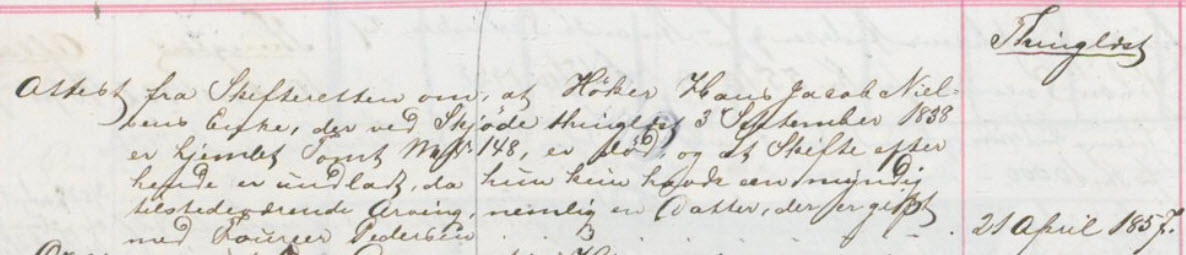 Thinglæst
Attest fra Skifteretten om, at Höker Hans Jacob Niel-
sens Enke, der ved Skjöde thinglæst 3 September 1838
er hjemlet Tomt No 148, er död, og at Skifte efter
hende er undladt, da hun kun havde een myndig
tilstedeværende Arving, nemlig en Datter, der er gift
med Foureer Pedersen
21 April 1857.